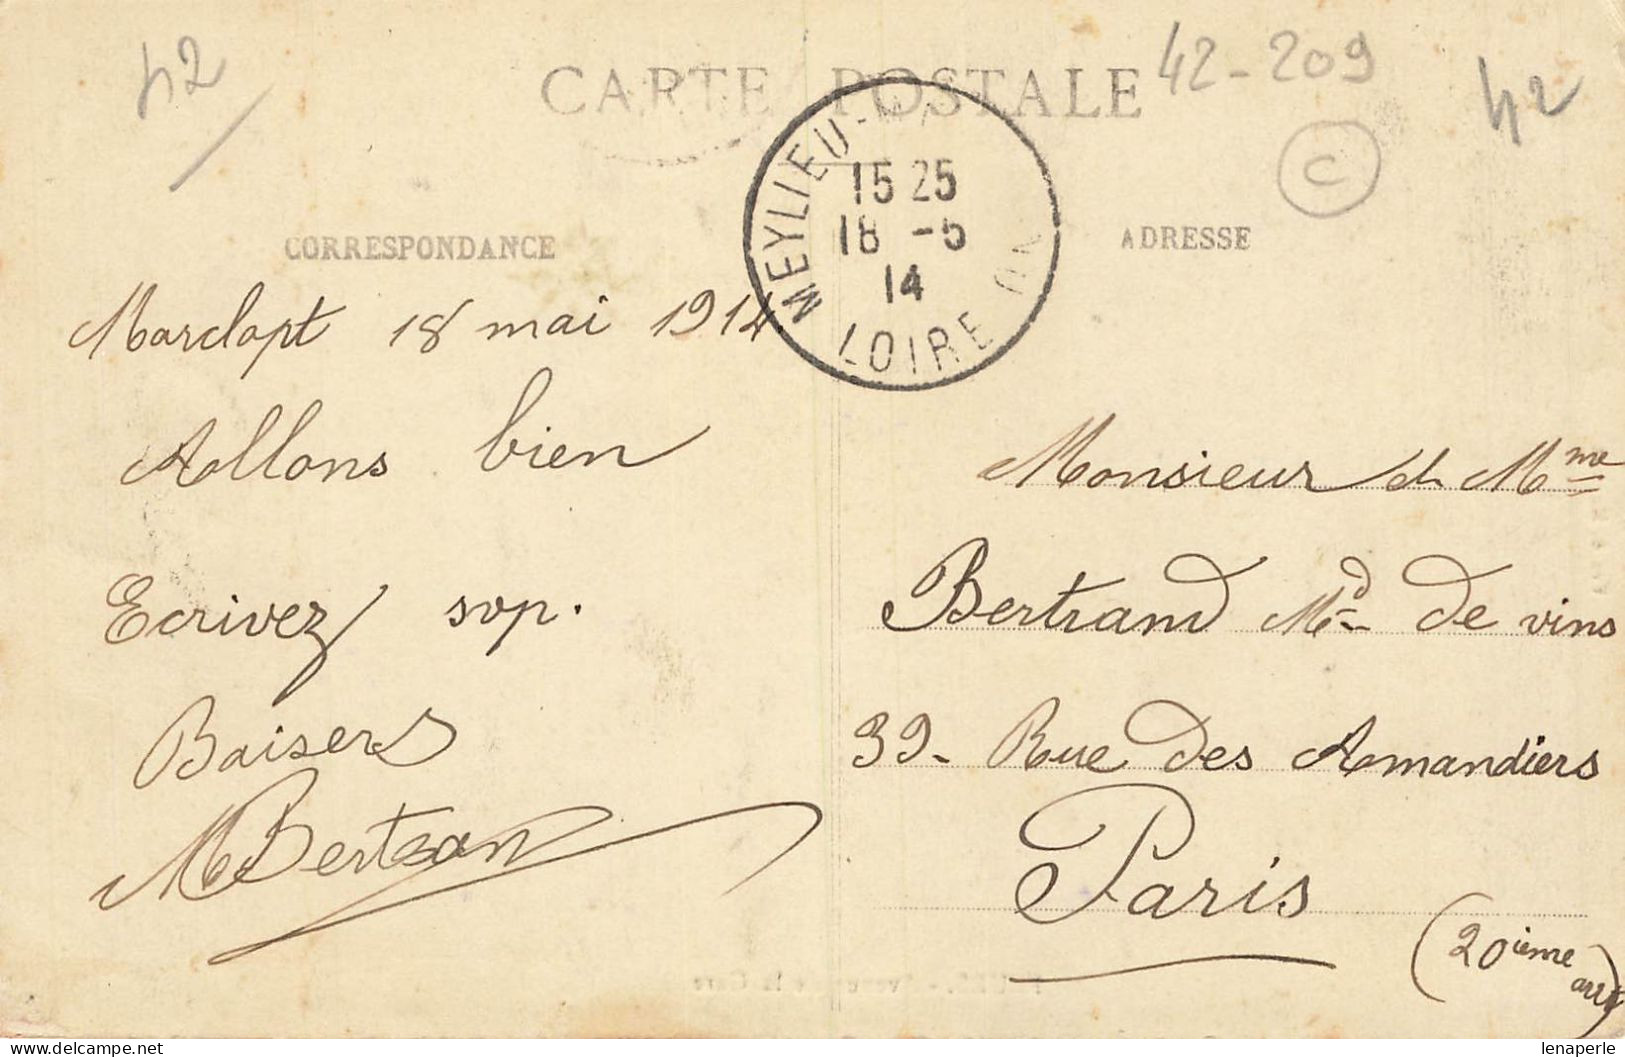 42
CARTE POSTALE
42-209
42
C
MEYLIEU-M
15 25
18 -5
14
LOIRE
CORRESPONDANCE
ADRESSE
Marclopt 18 mai 1914
Allons bien
Ecrivez svp.
Baisers
MBertran
Monsieur & Mme
Bertrand Md de vins
39- Rue des Amandiers
Paris
(20ième arrt)
lenaperle